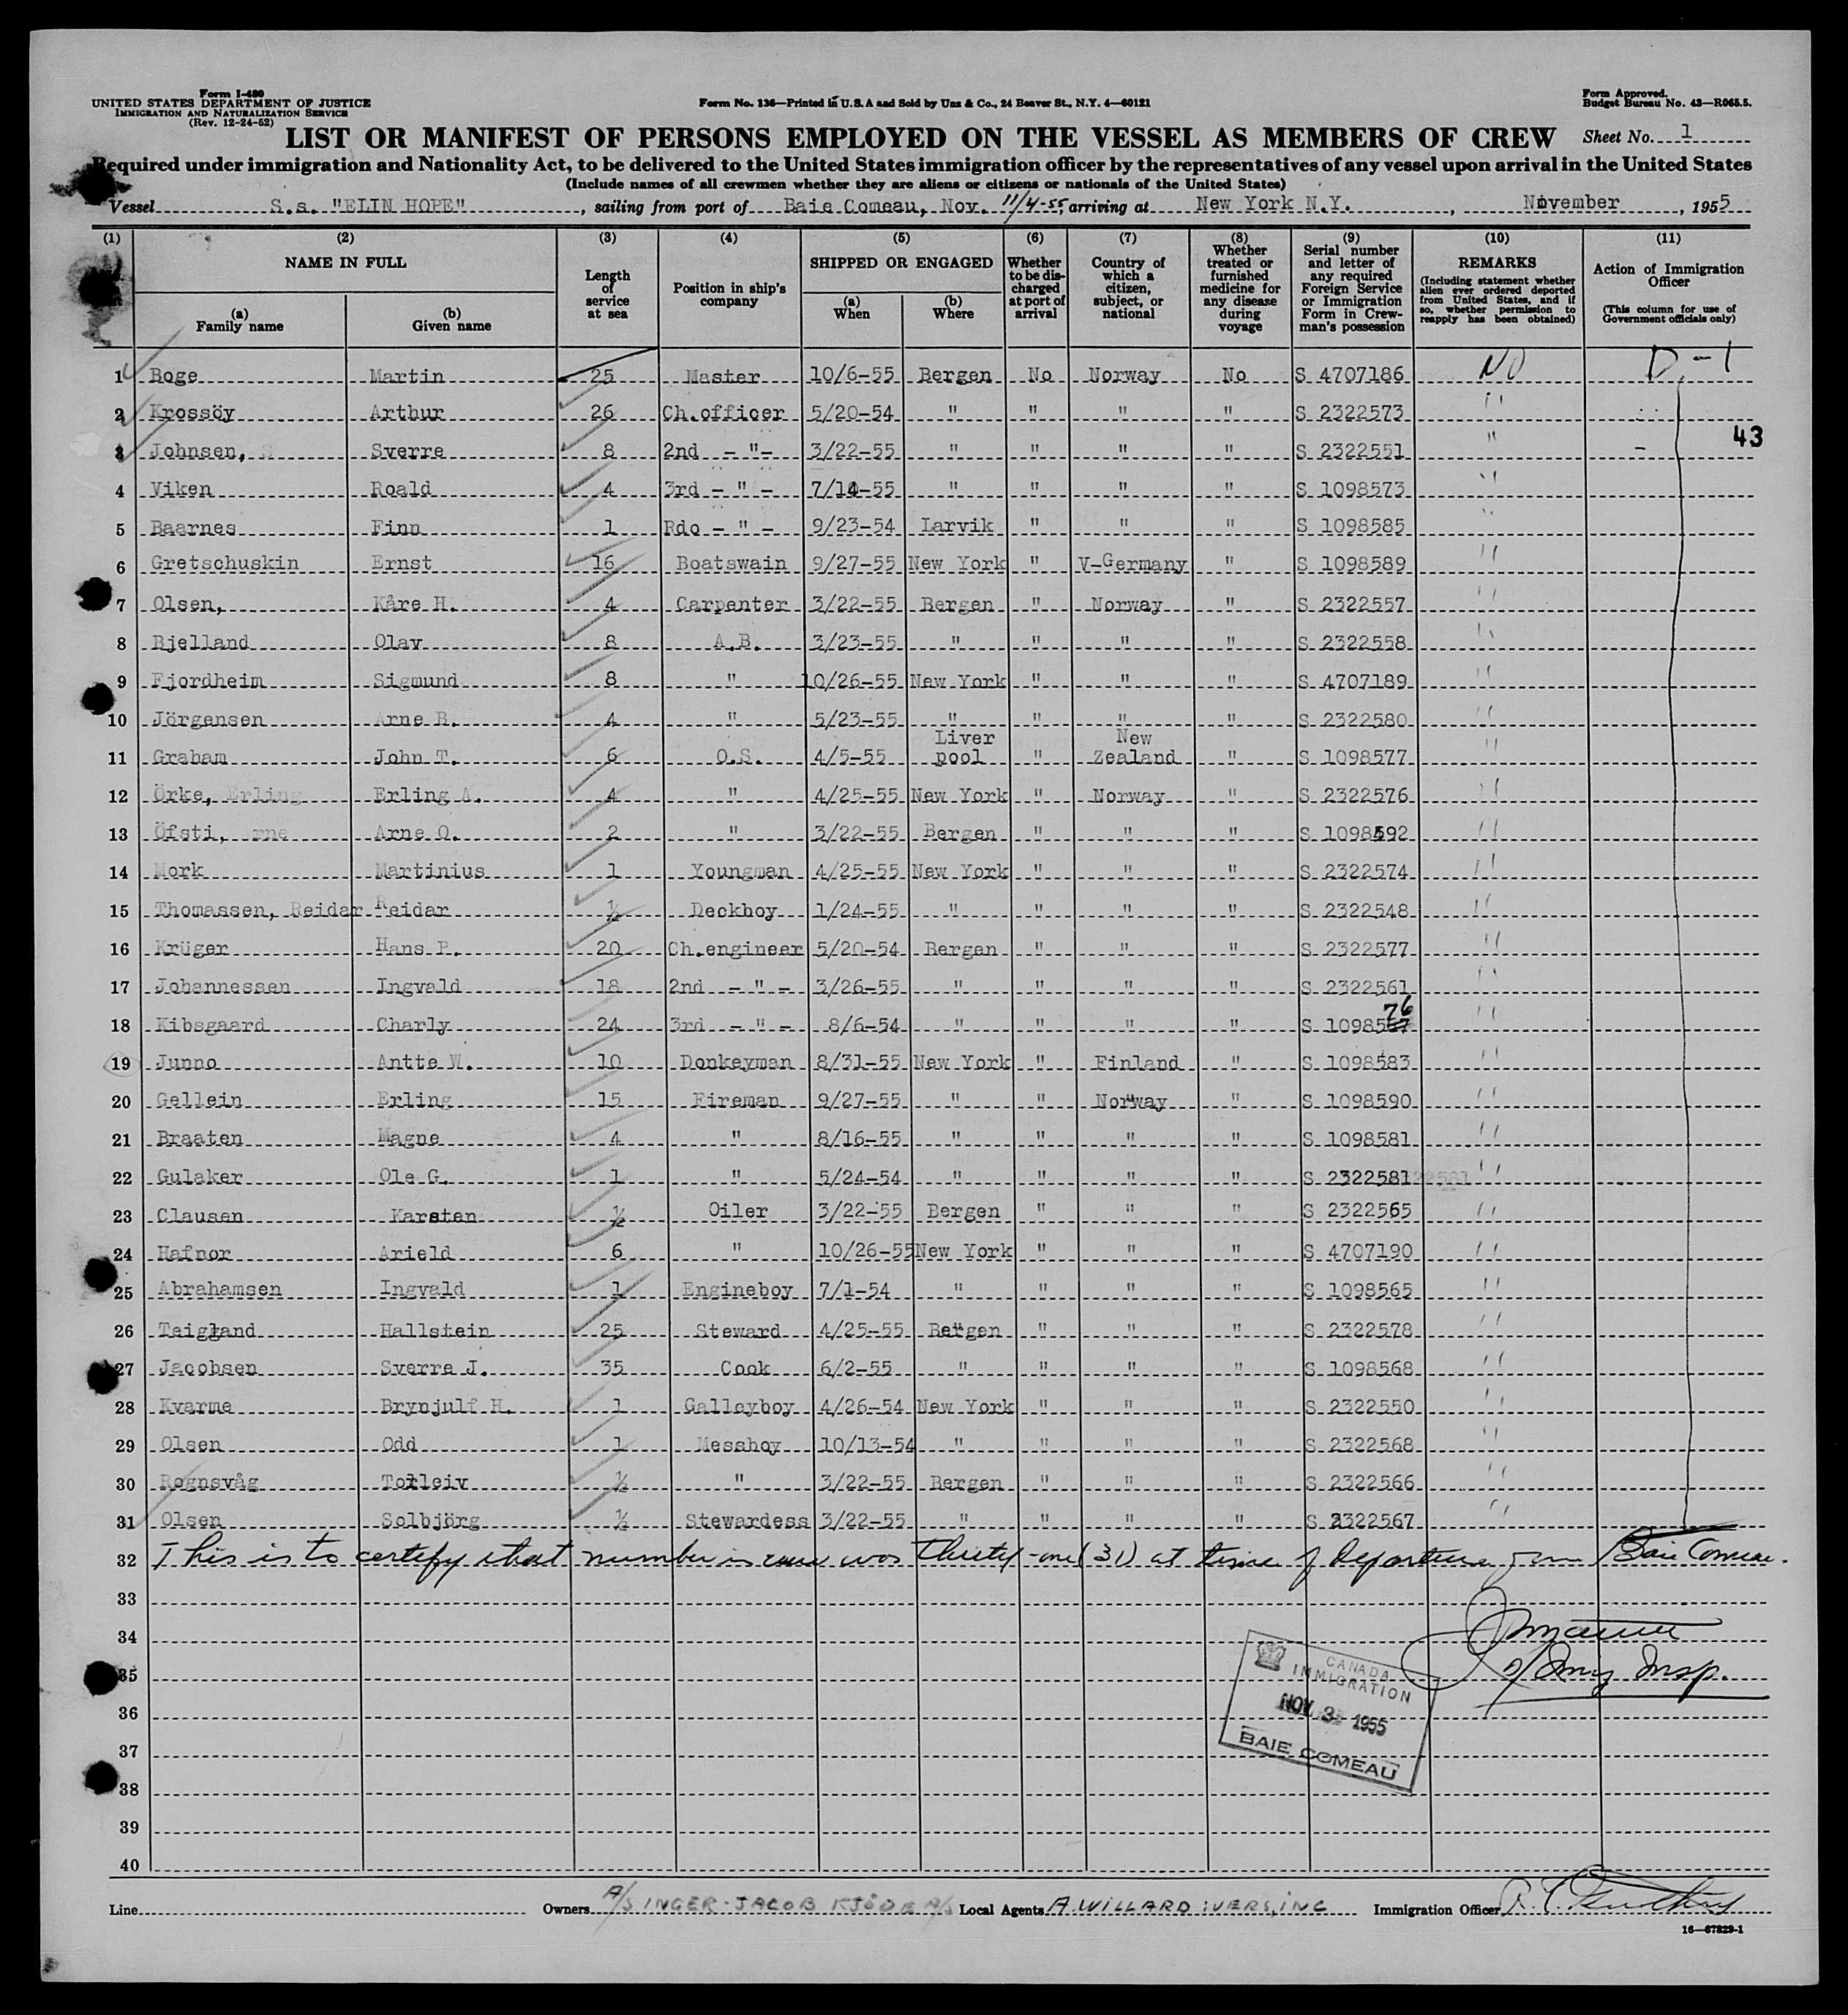 Form I-480
UNITED STATES DEPARTMENT OF JUSTICE
IMMIGRATION AND NATURALIZATION SERVICE
(Rev. 12-24-52)
Form No. 136—Printed in U.S.A and Sold by Unz & Co., 24 Beaver St., N.Y. 4—60121
Form Approved.
Budget Bureau No. 43—R065.5.
LIST OR MANIFEST OF PERSONS EMPLOYED ON THE VESSEL AS MEMBERS OF CREW
Sheet No. 1
Required under immigration and Nationality Act, to be delivered to the United States immigration officer by the representatives of any vessel upon arrival in the United States
(Include names of all crewmen whether they are aliens or citizens or nationals of the United States)
Vessel S.s. "ELIN HOPE", sailing from port of Baie Comeau, Nov. 11/4-55, arriving at New York N.Y., November, 1955
(1) (2) (3) (4) (5) (6) (7) (8) (9) (10) (11)
NAME IN FULL
(a) Family name
(b) Given name
Length of service at sea
Position in ship's company
SHIPPED OR ENGAGED
(a) When
(b) Where
Whether to be discharged at port of arrival
Country of which a citizen, subject, or national
Whether treated or furnished medicine for any disease during voyage
Serial number and letter of any required Foreign Service or Immigration Form in Crewman's possession
REMARKS
(Including statement whether alien ever ordered deported from United States, and if so, whether permission to reapply has been obtained)
Action of Immigration Officer
(This column for use of Government officials only)
1 Boge Martin 25 Master 10/6-55 Bergen No Norway No S 4707186 NO D-1
2 Krossöy Arthur 26 Ch.officer 5/20-54 " " " " S 2322573 "
43
3 Johnsen, Sverre 8 2nd - "- 3/22-55 " " " " S 2322551 "
4 Viken Roald 4 3rd - " - 7/14-55 " " " " S 1098573 "
5 Baarnes Finn 1 Rdo - " - 9/23-54 Larvik " " " S 1098585 "
6 Gretschuskin Ernst 16 Boatswain 9/27-55 New York " V-Germany " S 1098589 "
7 Olsen, Kåre H. 4 Carpenter 3/22-55 Bergen " Norway " S 2322557 "
8 Bjelland Olav 8 A.B. 3/23-55 " " " " S 2322558 "
9 Fjordheim Sigmund 8 " 10/26-55 New York " " " S 4707189 "
10 Jörgensen Arne B. 4 " 5/23-55 " " " " S 2322580 "
11 Graham John T. 6 O.S. 4/5-55 Liver pool " New Zealand " S 1098577 "
12 Örke, Erling Erling A. 4 " 4/25-55 New York " Norway " S 2322576 "
13 Öfsti, rne Arne O. 2 " 3/22-55 Bergen " " " S 1098592 "
14 Mork Martinius 1 Youngman 4/25-55 New York " " " S 2322574 "
15 Thomassen, Reidar Reidar ½ Deckboy 1/24-55 " " " " S 2322548 "
16 Krüger Hans P. 20 Ch.engineer 5/20-54 Bergen " " " S 2322577 "
17 Johannessen Ingvald 18 2nd - " - 3/26-55 " " " " S 2322561 "
18 Kibsgaard Charly 24 3rd - " - 8/6-54 " " " " S 109857 76 "
19 Junno Antte W. 10 Donkeyman 8/31-55 New York " Finland " S 1098583 "
20 Gellein Erling 15 Fireman 9/27-55 " " Norway " S 1098590 "
21 Braaten Magne 4 " 8/16-55 " " " " S 1098581 "
22 Gulaker Ole G. 1 " 5/24-54 " " " " S 2322581 "
23 Clausen Karsten ½ Oiler 3/22-55 Bergen " " " S 2322565 "
24 Hafnor Arield 6 " 10/26-55 New York " " " S 4707190 "
25 Abrahamsen Ingvald 1 Engineboy 7/1-54 " " " " S 1098565 "
26 Teigland Hallstein 25 Steward 4/25-55 Bergen " " " S 2322578 "
27 Jacobsen Sverre J. 35 Cook 6/2-55 " " " " S 1098568 "
28 Kvarme Brynjulf H. 1 Galleyboy 4/26-54 New York " " " S 2322550 "
29 Olsen Odd 1 Messboy 10/13-54 " " " " S 2322568 "
30 Rognsvåg Torleiv ½ " 3/22-55 Bergen " " " S 2322566 "
31 Olsen Solbjörg ½ Stewardess 3/22-55 " " " " S 2322567 "
32 This is to certify that number in crew was thirty-one (31) at time of departure from Baie Comeau.
33
34
35 Img Insp.
36
37
38
39
40
CANADA
IMMIGRATION
NOV 3 1955
BAIE COMEAU
Line Owners A/S INGER-JACOB KJÖDE A/S Local Agents A. WILLARD IVERS, INC Immigration Officer
16—67829-1